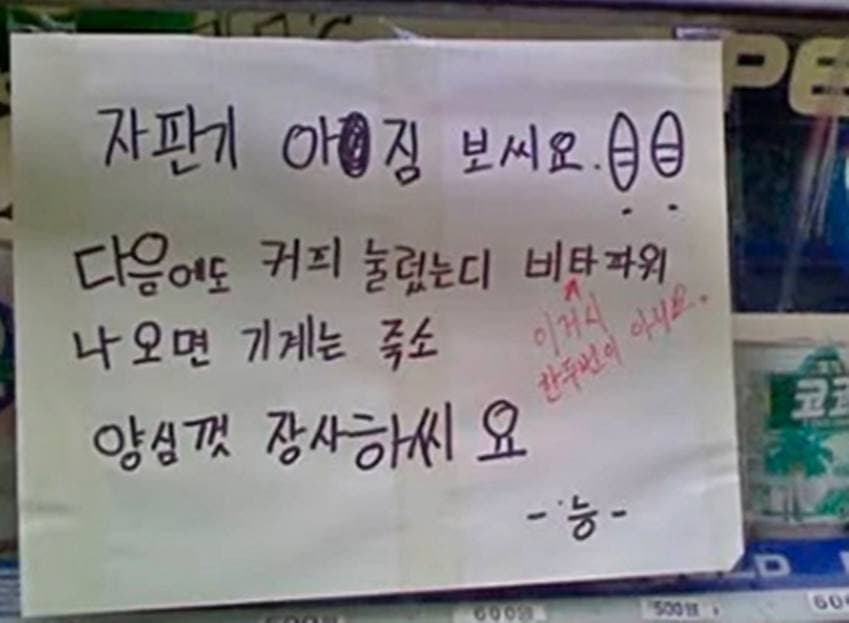 자판기 아짐 보씨요.
다음에도 커피 눌렀는디 비타파워
이거시
한두번이 아니요.
나오면 기계는 죽소
양심껏 장사하씨요
-능-
600원
500원